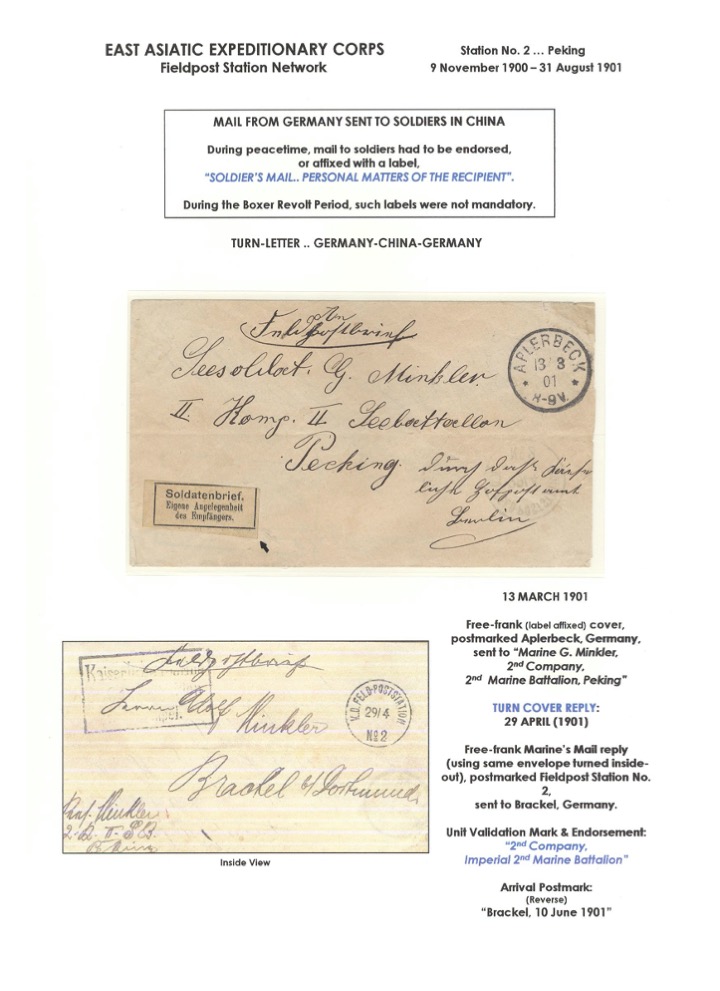 EAST ASIATIC EXPEDITIONARY CORPS
Fieldpost Station Network
Station No. 2 … Peking
9 November 1900 – 31 August 1901
MAIL FROM GERMANY SENT TO SOLDIERS IN CHINA
During peacetime, mail to soldiers had to be endorsed,
or affixed with a label,
"SOLDIER'S MAIL.. PERSONAL MATTERS OF THE RECIPIENT".
During the Boxer Revolt Period, such labels were not mandatory.
TURN-LETTER .. GERMANY-CHINA-GERMANY
An
Feldpostbrief
Seesoldat. G. Minkler
II. Komp. II Seebattaillon
Pecking. durch das
Hofpostamt
Berlin
APLERBECK
13 3
01
8-9V.
Soldatenbrief.
Eigene Angelegenheit
des Empfängers.
13 MARCH 1901
Free-frank (label affixed) cover,
postmarked Aplerbeck, Germany,
sent to "Marine G. Minkler,
2nd Company,
2nd Marine Battalion, Peking"
TURN COVER REPLY:
29 APRIL (1901)
Free-frank Marine's Mail reply
(using same envelope turned inside-
out), postmarked Fieldpost Station No.
2,
sent to Brackel, Germany.
Unit Validation Mark & Endorsement:
"2nd Company,
Imperial 2nd Marine Battalion"
Arrival Postmark:
(Reverse)
"Brackel, 10 June 1901"
Feldpostbrief
Herrn Adolf Minkler
Brackel b/Dortmund
K.D. FELD-POSTSTATION
29/4
No 2
Minkler
2. K. II. S.B.
Inside View